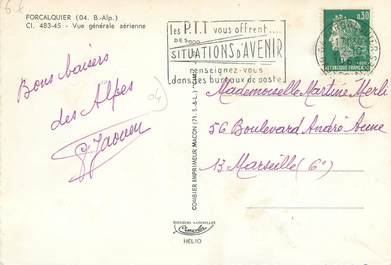 FORCALQUIER (04. B.-Alp.)
Cl. 483-45 - Vue générale aérienne
les P.T.T vous offrent....
DES
SITUATIONS D'AVENIR
renseignez-vous
dans les bureaux de poste
0,30
RÉPUBLIQUE FRANÇAISE
Bons baisers
des Alpes
G. Jaouen
04
Mademoiselle Martine Merli
56 Boulevard André Aune
13 Marseille (6e)
COMBIER IMPRIMEUR MACON (71. S.-&-L.) "CIM"
HELIO